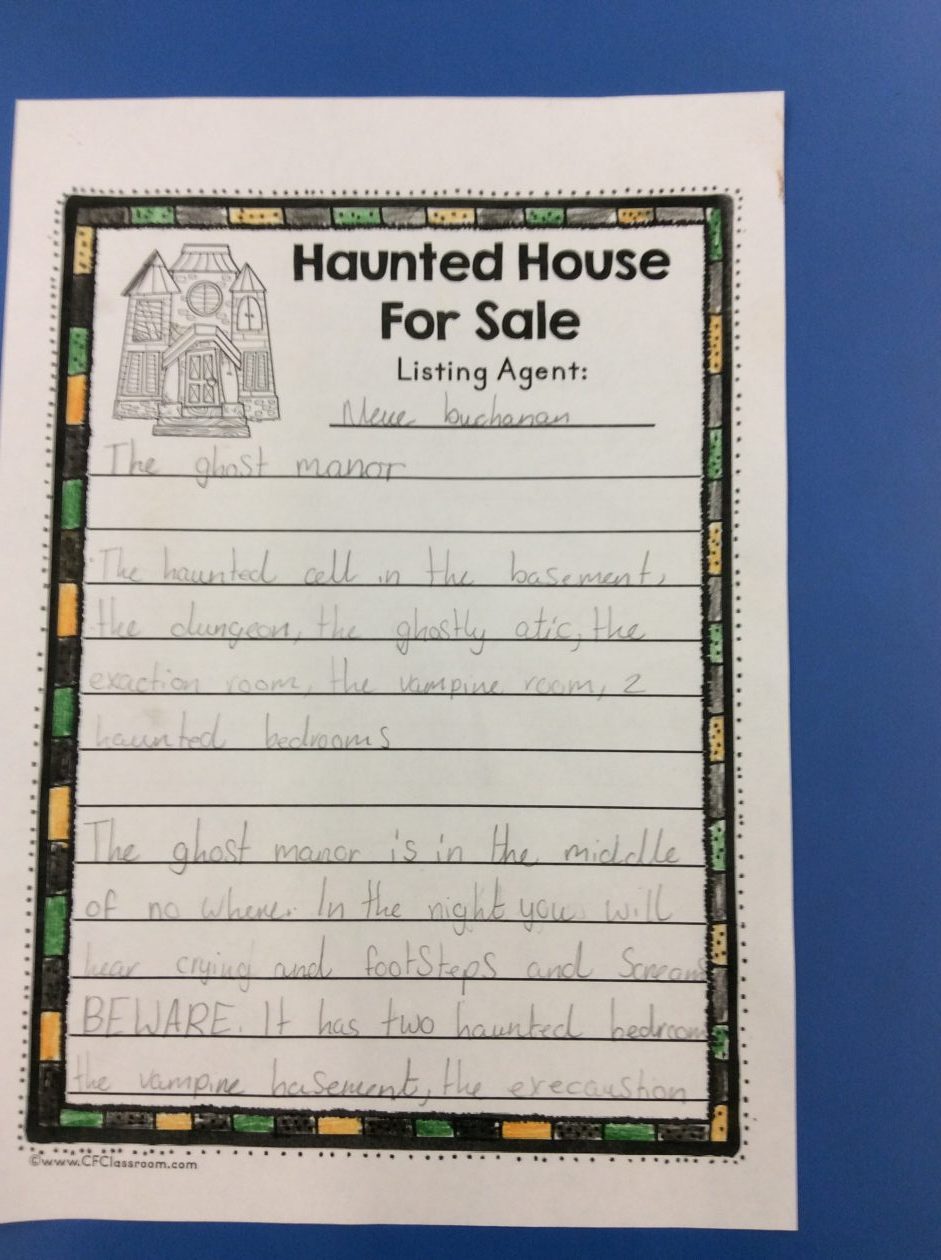 Haunted House
For Sale
Listing Agent:
buchanan
The ghost manor
The haunted cell in the basement,
the dungeon, the ghostly atic, the
exaction room, the vampine room, 2
haunted bedrooms
The ghost manor is in the middle
of no where. In the night you will
hear crying and footSteps and Screams
BEWARE. It has two haunted bedroom
the vampine basement, the execaustion
©www.CFClassroom.com